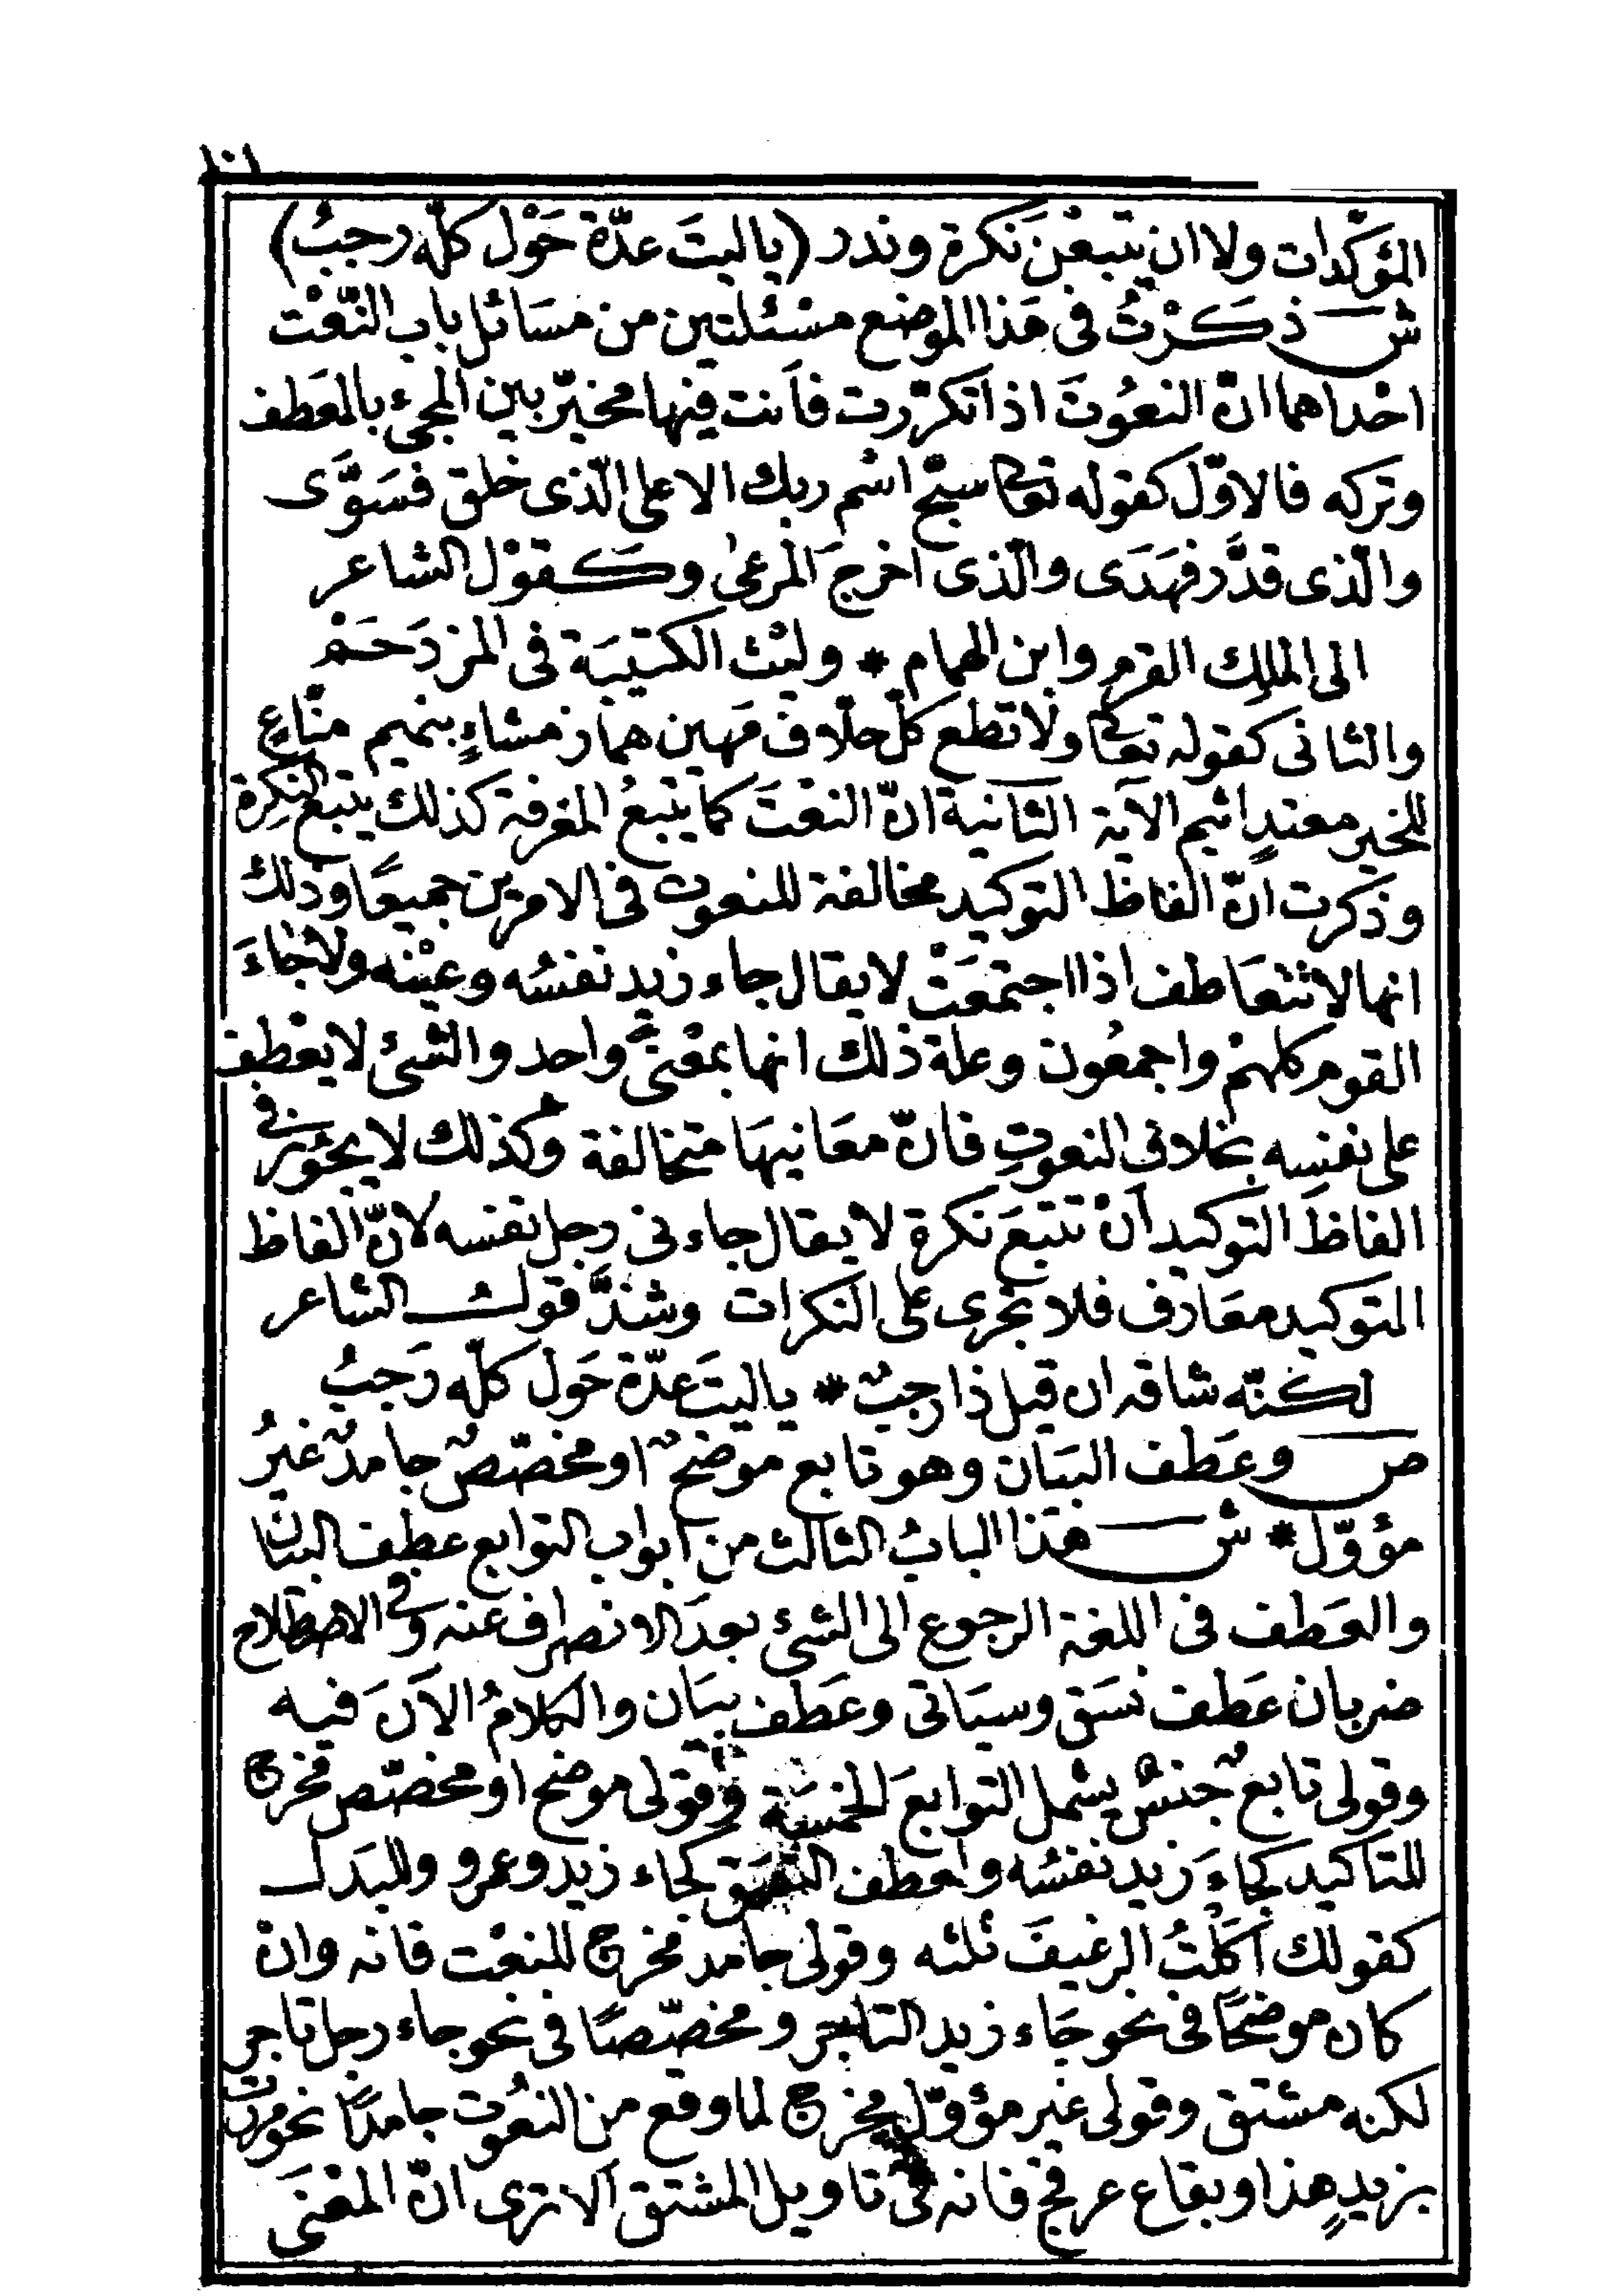 ١٠١
المؤَكِّدات ولا ان يتبعْنَ نَكرة وندر (يا ليتَ عدّة حَوْل كلّه رجبُ)
ش ذكَرْتُ فى هَذا الموضع مسْئلتين من مسَائل باب النّعْت
احْداهما انّ النعُوتَ اذا تكرّرت فاَنت فيها مخيّر بين المجىء بالعَطف
وتركه فالاوّل كقوله تعالى سبّح اسْم ربك الاعلى الّذى خلق فسَوَّى
والّذى قدَّر فهَدَى والّذى اخرجَ المرعىٰ وكَقوْل الشاعر
الى الملِك القرم وابن الهمام * وليْث الكتيبَة فى المزدَحَمْ
والثانى كقوله تعالى ولا تطع كلّ حلّاف مَهين هماز مشاءٍ بنميم منّاعٍ
للخير معتدٍ اثيم الآية الثانية انّ النعْتَ كما يتبعُ المعْرفة كذلك يتبع النكِرة
وذكرت انّ الفاظ التوكيد مخالفة للنعوت فى الامرين جميعًا وذلك
انها لا تتعَاطف اذا اجتمعَتْ لا يقال جاء زيد نفسُه وعيْنه ولا جَاءَ
القوم كلهمْ واجمعُون وعلة ذلك انها بمعْنىً واحد والشئ لا يعْطف
على نفسِه بخلاف النعوتِ فانّ معَانيهَا متخالفة وكذلك لا يجُوز فى
الفاظَ التوكيد اَنْ تتبعَ نكرة لا يقال جاءنى رجل نفسه لانّ الفاظ
التوكيد معَارف فلا تجْرى على النكرات وشذَّ قول الشاعر
لكنّه شاقه ان قيل ذا رجبٌ * يا ليتَ عدّة حَول كلّه رَجبُ
ص وعَطف البيَان وهو تابع موضحٌ او مخصّصٌ جامدٌ غيرُ
مؤوّل * ش هَذا البابُ الثالث من ابواب التوابع عطف البيان
والعَطف فى اللغة الرجوع الى الشئ بعدَ الانصراف عنه وفى الاصطلاح
ضربان عَطف نسَق وسيَاتى وعَطف بيَان والكلامُ الآنَ فيه
وقولى تابعٌ جنسٌ يشمل التوابعَ الخمسَة وقولى موضح او مخصّص مخرج
للتاكيد كجاءَ زيد نفسُه ولعطف النسَق كجاء زيد وعمرو وللبَدل
كقولك اَكَلْتُ الرغيفَ ثلثه وقولى جامد مخرج للنعْت فانه وانْ
كان موضحًا فى نحو جَاء زيد التاجر ومخصّصًا فى نحو جاء رجل تاجر
لكنه مشتق وقولى غير مؤوّل مخرج لما وقع من النعُوت جامدًا نحو مررت
بزيدٍ هذا وبقاع عرفج فانه فى تاويل المشتق اَلا ترى انّ المعْنىَ